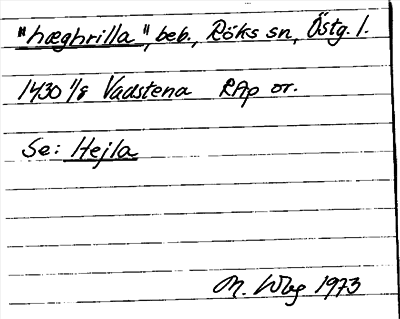 "hæghrilla", beb., Röks sn, Östg. l.
1430 1/8 Vadstena RAp or.
Se: Hejla
M. Wbg 1973